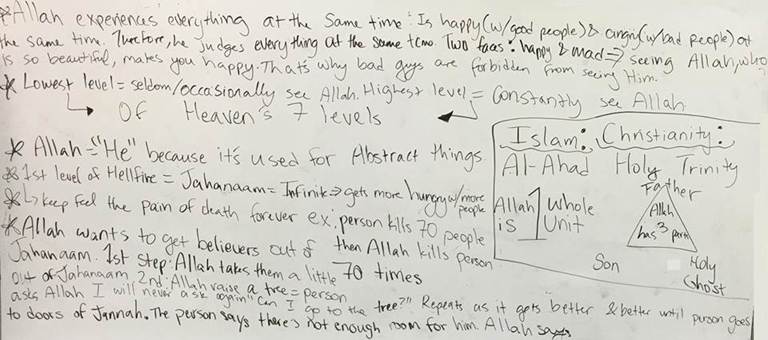 *Allah experiences everything at the same time: Is happy (w/good people) & angry (w/bad people) at
the same time. Therefore, he judges everything at the same time. Two faces: happy & mad => seeing Allah, who
is so beautiful, makes you happy. That's why bad guys are forbidden from seeing Him.
* Lowest level = seldom/occasionally see Allah. Highest level = Constantly see Allah
Of Heaven's 7 levels
* Allah = "He" because it's used for Abstract things.
* 1st level of Hellfire = Jahanaam = Infinite => gets more hungry w/more people
* Keep feel the pain of death forever ex. person kills 70 people
then Allah kills person
70 times
* Allah wants to get believers out of
Jahanaam. 1st step: Allah takes them a little
out of Jahanaam 2nd: Allah raise a tree = person
asks Allah I will never ask again "Can I go to the tree?" Repeats as it gets better & better until person goes
to doors of Jannah. The person says there's not enough room for him. Allah says
Islam: Christianity:
Al-Ahad Holy Trinity
Allah is 1 Whole Unit
Father
Allah
has 3 parts
Son Holy
Ghost